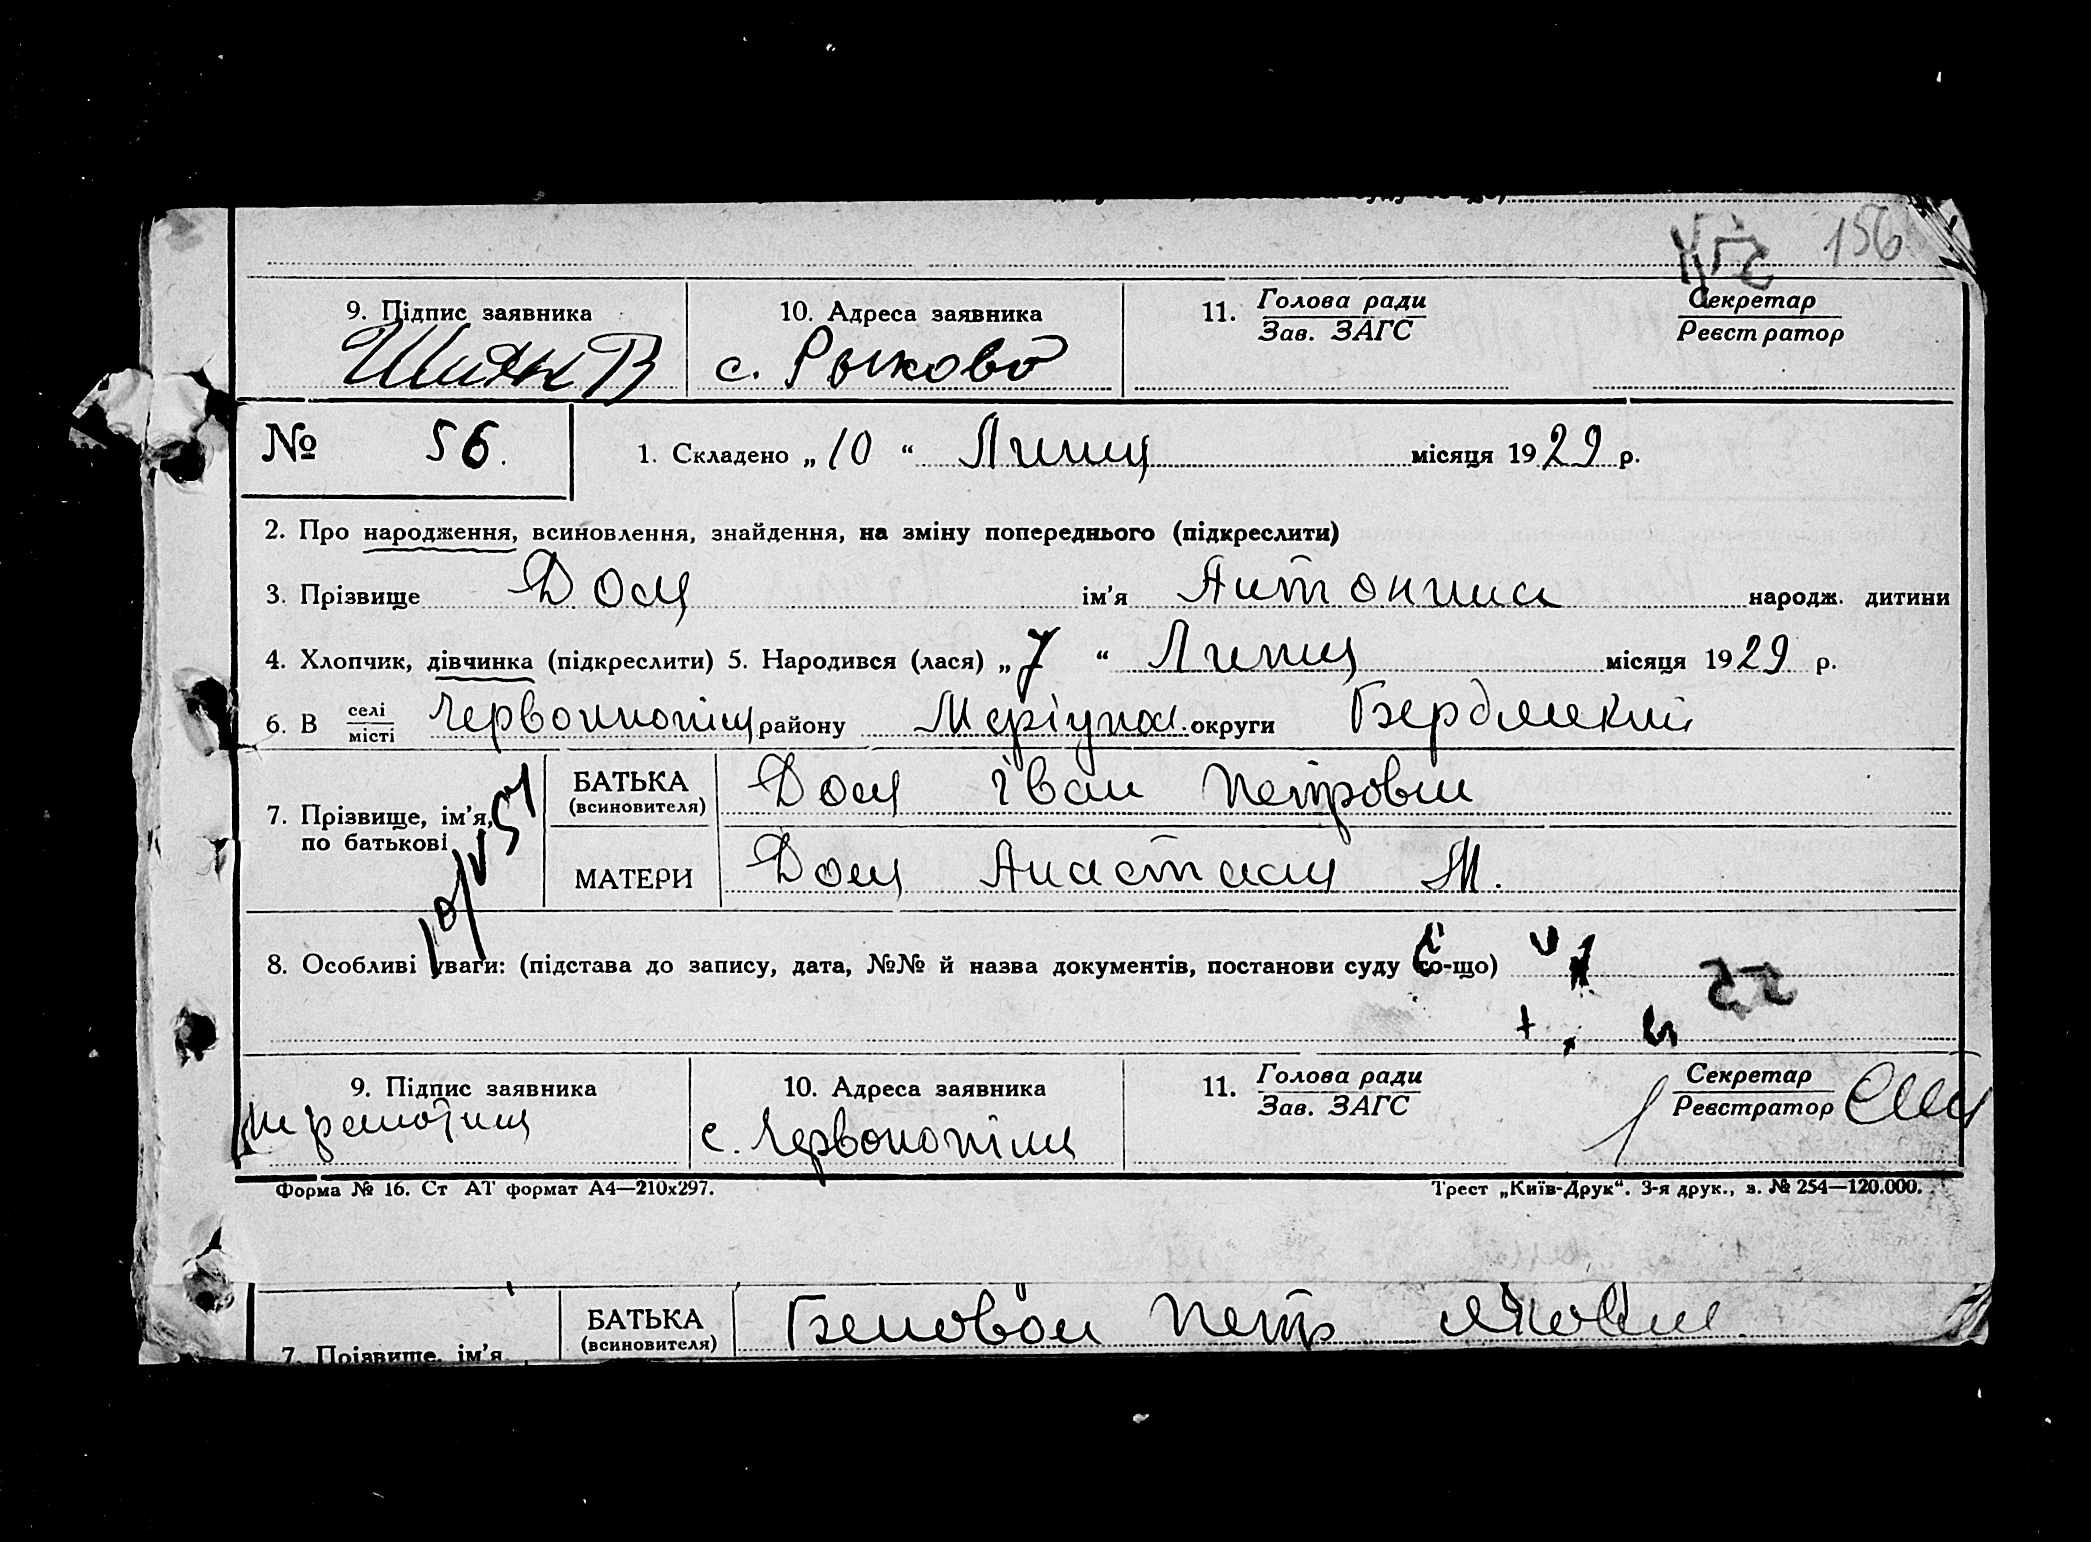 156
9. Підпис заявника 10. Адреса заявника 11. Голова ради Секретар
Зав. ЗАГС Реєстратор
Шиян В с. Рыково
№ 56. 1. Складено „ 10 “ Липця місяця 1929 р.
2. Про народження, всиновлення, знайдення, на зміну попереднього (підкреслити)
3. Прізвище Доля ім'я Антонина народж. дитини
4. Хлопчик, дівчинка (підкреслити) 5. Народився (лася) „ 7 “ Липця місяця 1929 р.
6. В селі району округи
місті
БАТЬКА Доля Іван Петрович
(всиновителя)
7. Прізвище, ім'я,
по батькові
МАТЕРИ Доля Анастасия М.
8. Особливі уваги: (підстава до запису, дата, №№ й назва документів, постанови суду то-що)
9. Підпис заявника 10. Адреса заявника 11. Голова ради Секретар
Зав. ЗАГС Реєстратор
с.
Форма № 16. Ст АТ формат А4—210х297. Трест „Київ-Друк“. 3-я друк., з. № 254—120.000.
БАТЬКА Петр
(всиновителя)
7. Прізвище, ім'я